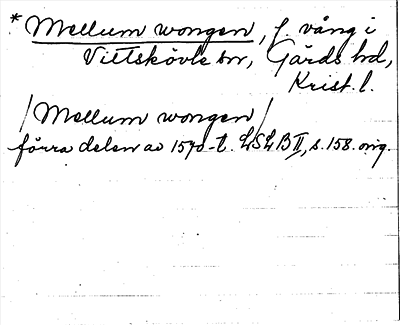 * Mellum wongen, f. vång i
Vittskövle sn, Gärds hd,
Krist. l.
/Mellum wongen/
förra delen av 1570-t. LSLB II, s. 158. orig.